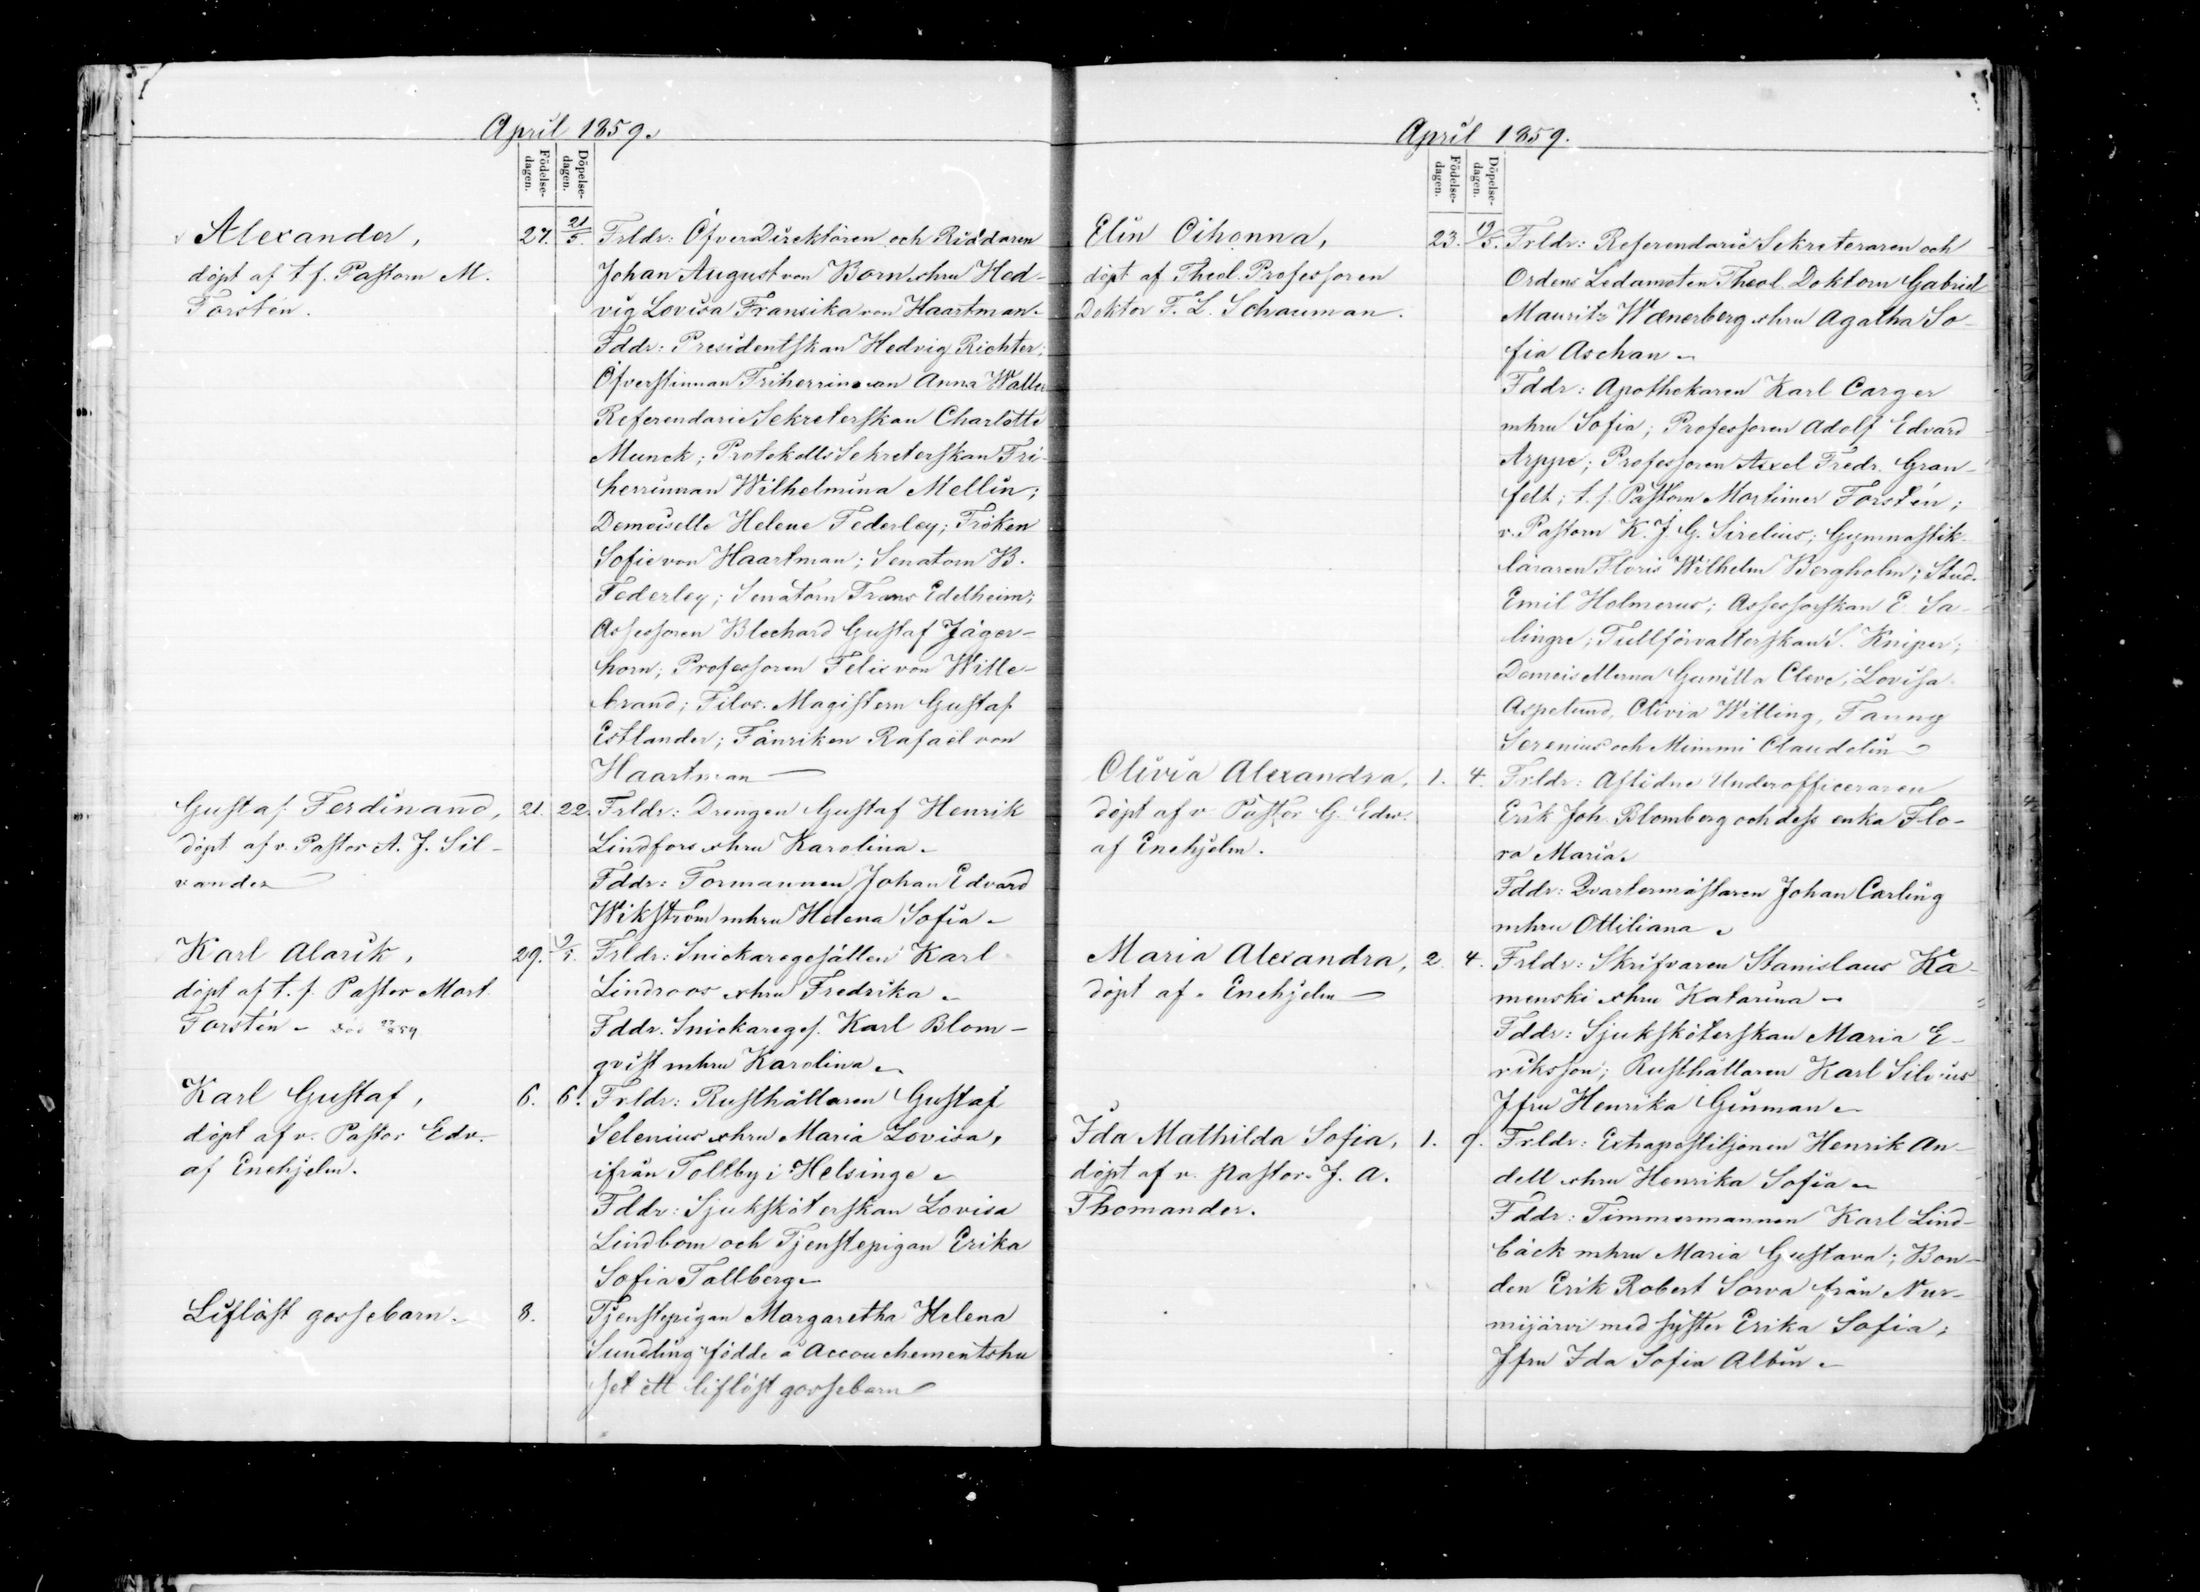 April 1859.
Födelse-
dagen.
Döpelse-
dagen.
Alexander,
döpt af t.f. Pastorn M.
Forstén.
27. 21/5.
Frldr: ÖfverDirektören och Riddaren
Johan August von Born o hru Hed-
vig Lovisa Fransika von Haartman.
Fddr: Presidentskan Hedvig Richter;
Öfverstinnan Friherrinnan Anna Wallen
ReferendarieSekreterskan Charlotte
Munck; ProtokollsSekreterskan Fri-
herrinnan Wilhelmina Mellin;
Demoiselle Helene Federley; Fröken
Sofie von Haartman; Senatorn B.
Federley; Senatorn Frans Edelheim;
Assessoren Blechard Gustaf Jäger-
horn; Professoren Felix von Wille-
brand; Filos. Magistern Gustaf
Estlander; Fänriken Rafaël von
Haartman
Gustaf Ferdinand,
döpt af v. Pastor A. J. Sil-
vander
21. 22.
Frldr: Drengen Gustaf Henrik
Lindfors o hru Karolina.
Fddr: Formannen Johan Edvard
Wikström m hru Helena Sofia.
Karl Alarik,
döpt af t.f. Pastor Mort.
Forstén - död
29. 9/5.
Frldr: Snickaregesällen Karl
Lindroos o hru Fredrika.
Fddr. Snickareges. Karl Blom-
qvist m hru Karolina.
Karl Gustaf,
döpt af v. Pastor Edv.
af Enehjelm.
6. 6.
Frldr: Rusthållaren Gustaf
Selenius o hru Maria Lovisa,
ifrån Tollby i Helsinge.
Fddr: Sjuksköterskan Lovisa
Lindbom och Tjenstepigan Erika
Sofia Tallberg.
Liflöst gossebarn.
8.
Tjenstepigan Margaretha Helena
Sundling födde å Accouchementshu
set ett liflöst gossebarn
April 1859.
Födelse-
dagen.
Döpelse-
dagen.
Elin Cihonna,
döpt af Theol. Professoren
Doktor F. L. Schauman.
23. 19/5.
Frldr: ReferendarieSekreteraren och
Ordens Ledamoten Theol. Doktorn Gabriel
Mauritz Wænerberg o hru Agatha So-
fia Aschan.
Fddr: Apothekaren Karl Carger
m hru Sofia; Professoren Adolf Edvard
Arppe; Professoren Axel Fredr. Gran-
felt; t.f. Pastorn Mortimer Forstén;
v. Pastorn K. J. G. Sirelius; Gymnastik-
läraren Floris Wilhelm Bergholm; Stud.
Emil Holmerus; Assessorskan E. Sa-
lingre; Tullförvalterskan S. Kniper;
Demoisellerna Gunilla Cleve, Lovisa
Aspelund, Olivia Willing, Fanny
Serenius och Mimmi Claudelin
Olivia Alexandra,
döpt af v Pastor G. Edw.
af Enehjelm.
1. 4.
Frldr: Aflidne Underofficeraren
Erik Joh. Blomberg och dess enka Flo-
ra Maria.
Fddr: Qvartermästaren Johan Carling
m hru Ottiliana.
Maria Alexandra,
döpt af " Enehjelm
2. 4.
Frldr: Skrifvaren Stanislaus Ka-
menski o hru Katarina
Fddr: Sjuksköterskan Maria E-
riksson; Rusthållaren Karl Silvius
Jfru Henrika Ginman.
Ida Mathilda Sofia,
döpt af v. Pastor J. A.
Thomander.
1. 9.
Frldr: Extrapostiljonen Henrik An-
dell o hru Henrika Sofia.
Fddr: Timmermannen Karl Lind-
bäck m hru Maria Gustava; Bon-
den Erik Robert Sorva från Nur-
mijärvi med syster Erika Sofia;
Jfru Ida Sofia Albin.